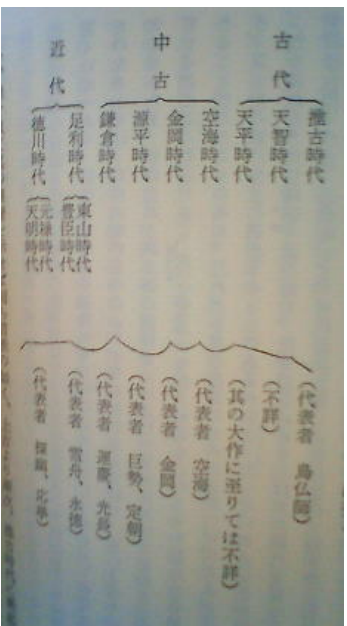 古代
推古時代
天智時代
天平時代
中古
空海時代
金岡時代
源平時代
鎌倉時代
近代
足利時代
東山時代
豊臣時代
徳川時代
元禄時代
天明時代
(代表者 鳥仏師)
(不詳)
(其の大作に至りては不詳)
(代表者 空海)
(代表者 金岡)
(代表者 巨勢、定朝)
(代表者 運慶、光長)
(代表者 雪舟、永徳)
(代表者